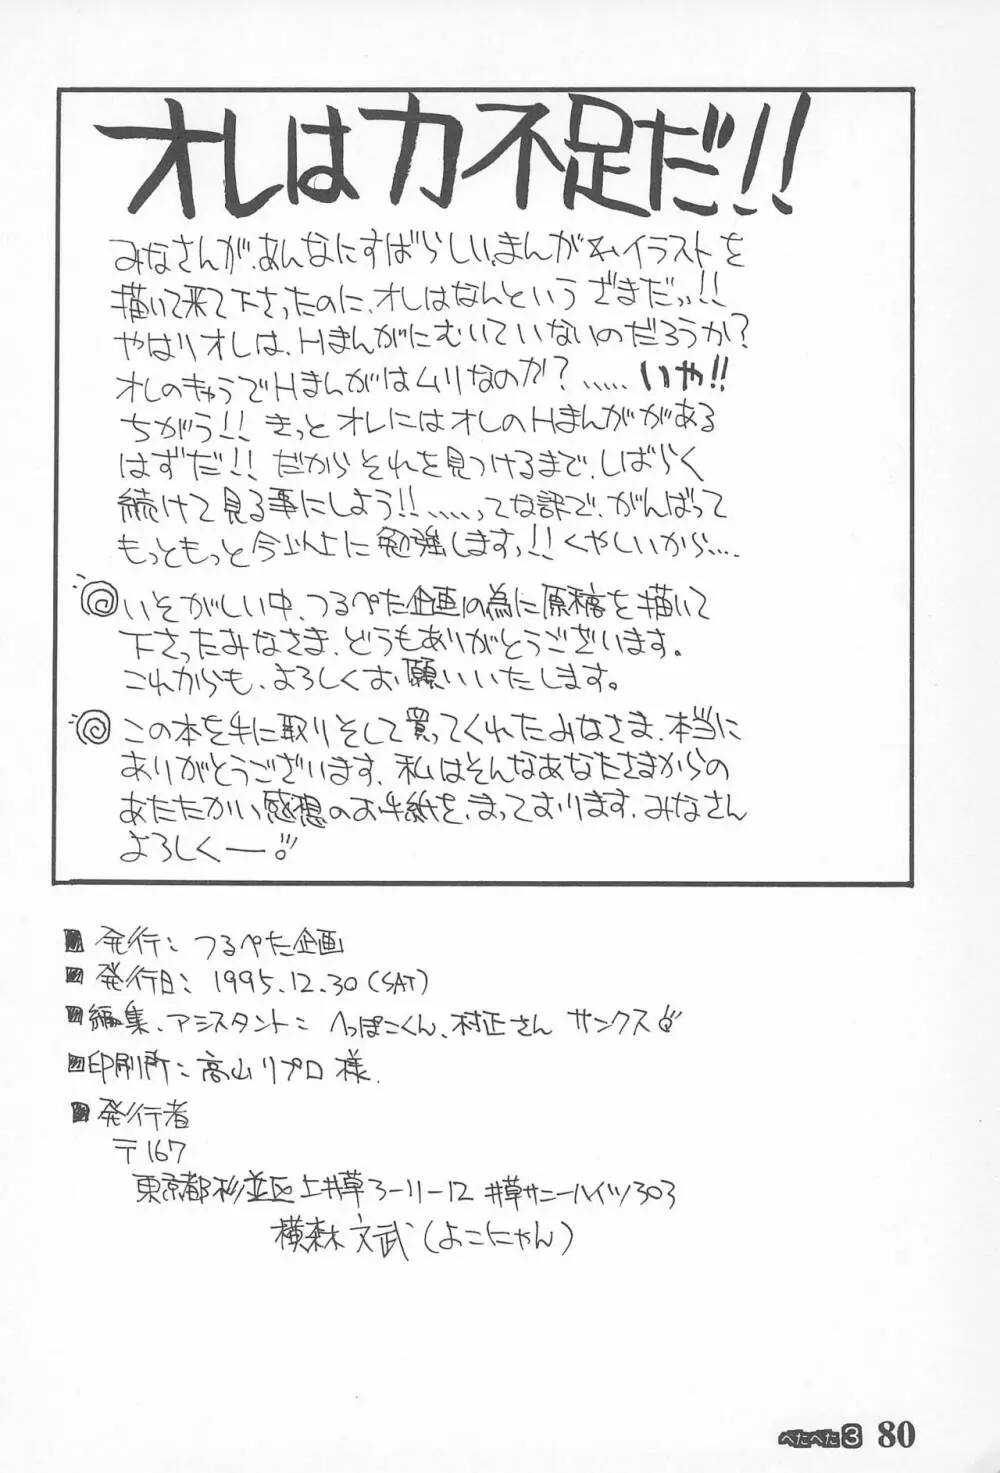 オレは力不足だ!!
みなさんが、あんなにすばらしい、まんが&イラストを
描いて来て下さったのに、オレはなんというざまだッ!!
やはりオレは、Hまんがにむいていないのだろうか?
オレのきゃらでHまんがはムリなのか?……いや!!
ちがう!! きっとオレにはオレのHまんががある
はずだ!! だからそれを見つけるまで、しばらく
続けて見る事にしよう!!……ってな訳で、がんばって
もっともっと今以上に勉強しますっ!! くやしいから…
いそがしい中、つるぺた企画の為に原稿を描いて
下さったみなさま、どうもありがとうございます。
これからも、よろしくお願いいたします。
この本を手に取りそして買ってくれたみなさま、本当に
ありがとうございます、私はそんなあなたさまからの
あたたかい感想のお手紙を、まっております、みなさん
よろしくー!
■発行: つるぺた企画
■発行日: 1995.12.30(SAT)
■編集、アシスタント: へっぽこくん、村正さん サンクス
■印刷所: 高山リプロ 様.
■発行者
〒167
東京都杉並区上井草3-11-12 井草サニーハイツ303
横森文武(よこにゃん)
ぺたぺた3 80